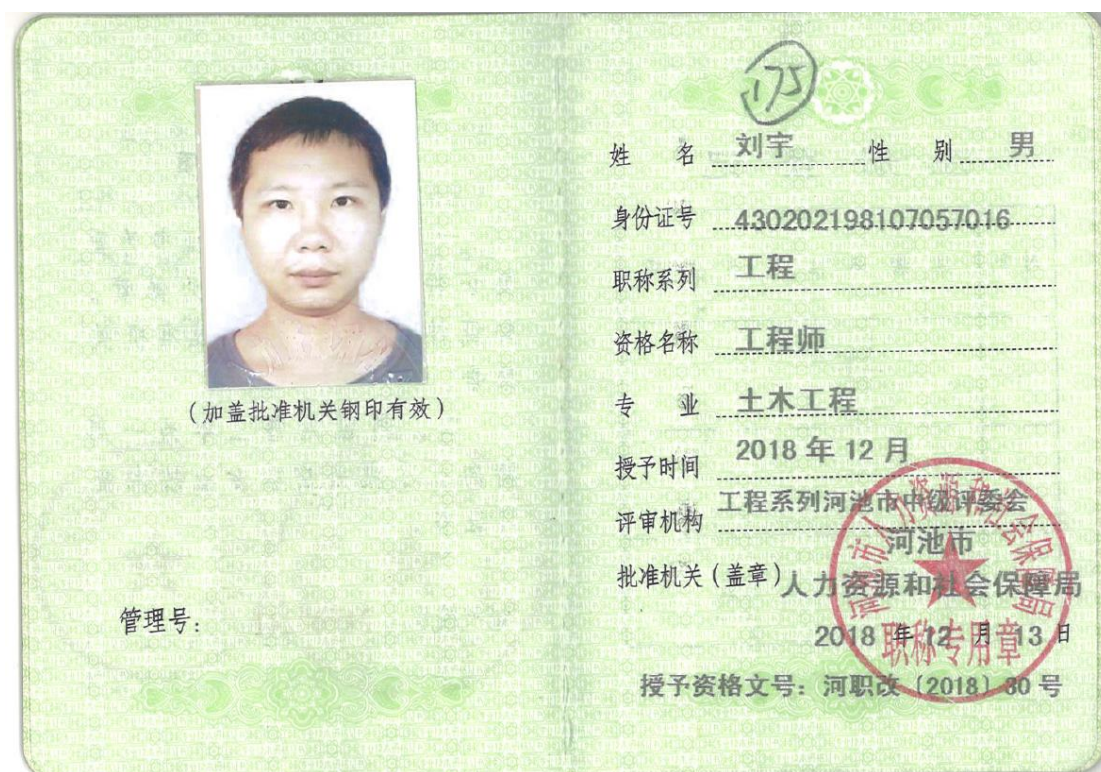 (加盖批准机关钢印有效)
管理号:
175
姓 名 刘宇 性 别 男
身份证号 430202198107057016
职称系列 工程
资格名称 工程师
专 业 土木工程
授予时间 2018 年 12 月
评审机构 工程系列河池市中级评委会
河池市
批准机关(盖章) 人力资源和社会保障局
2018 年 12 月 13 日
授予资格文号:河职改〔2018〕30 号
河池市人力资源和社会保障局
职称专用章